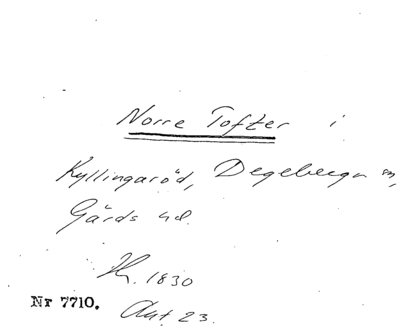 Norre Tofter i
Kyllingaröd, Degeberga sn,
Gärds hd.
Hs. 1830
Nr 7710.
Akt 23.